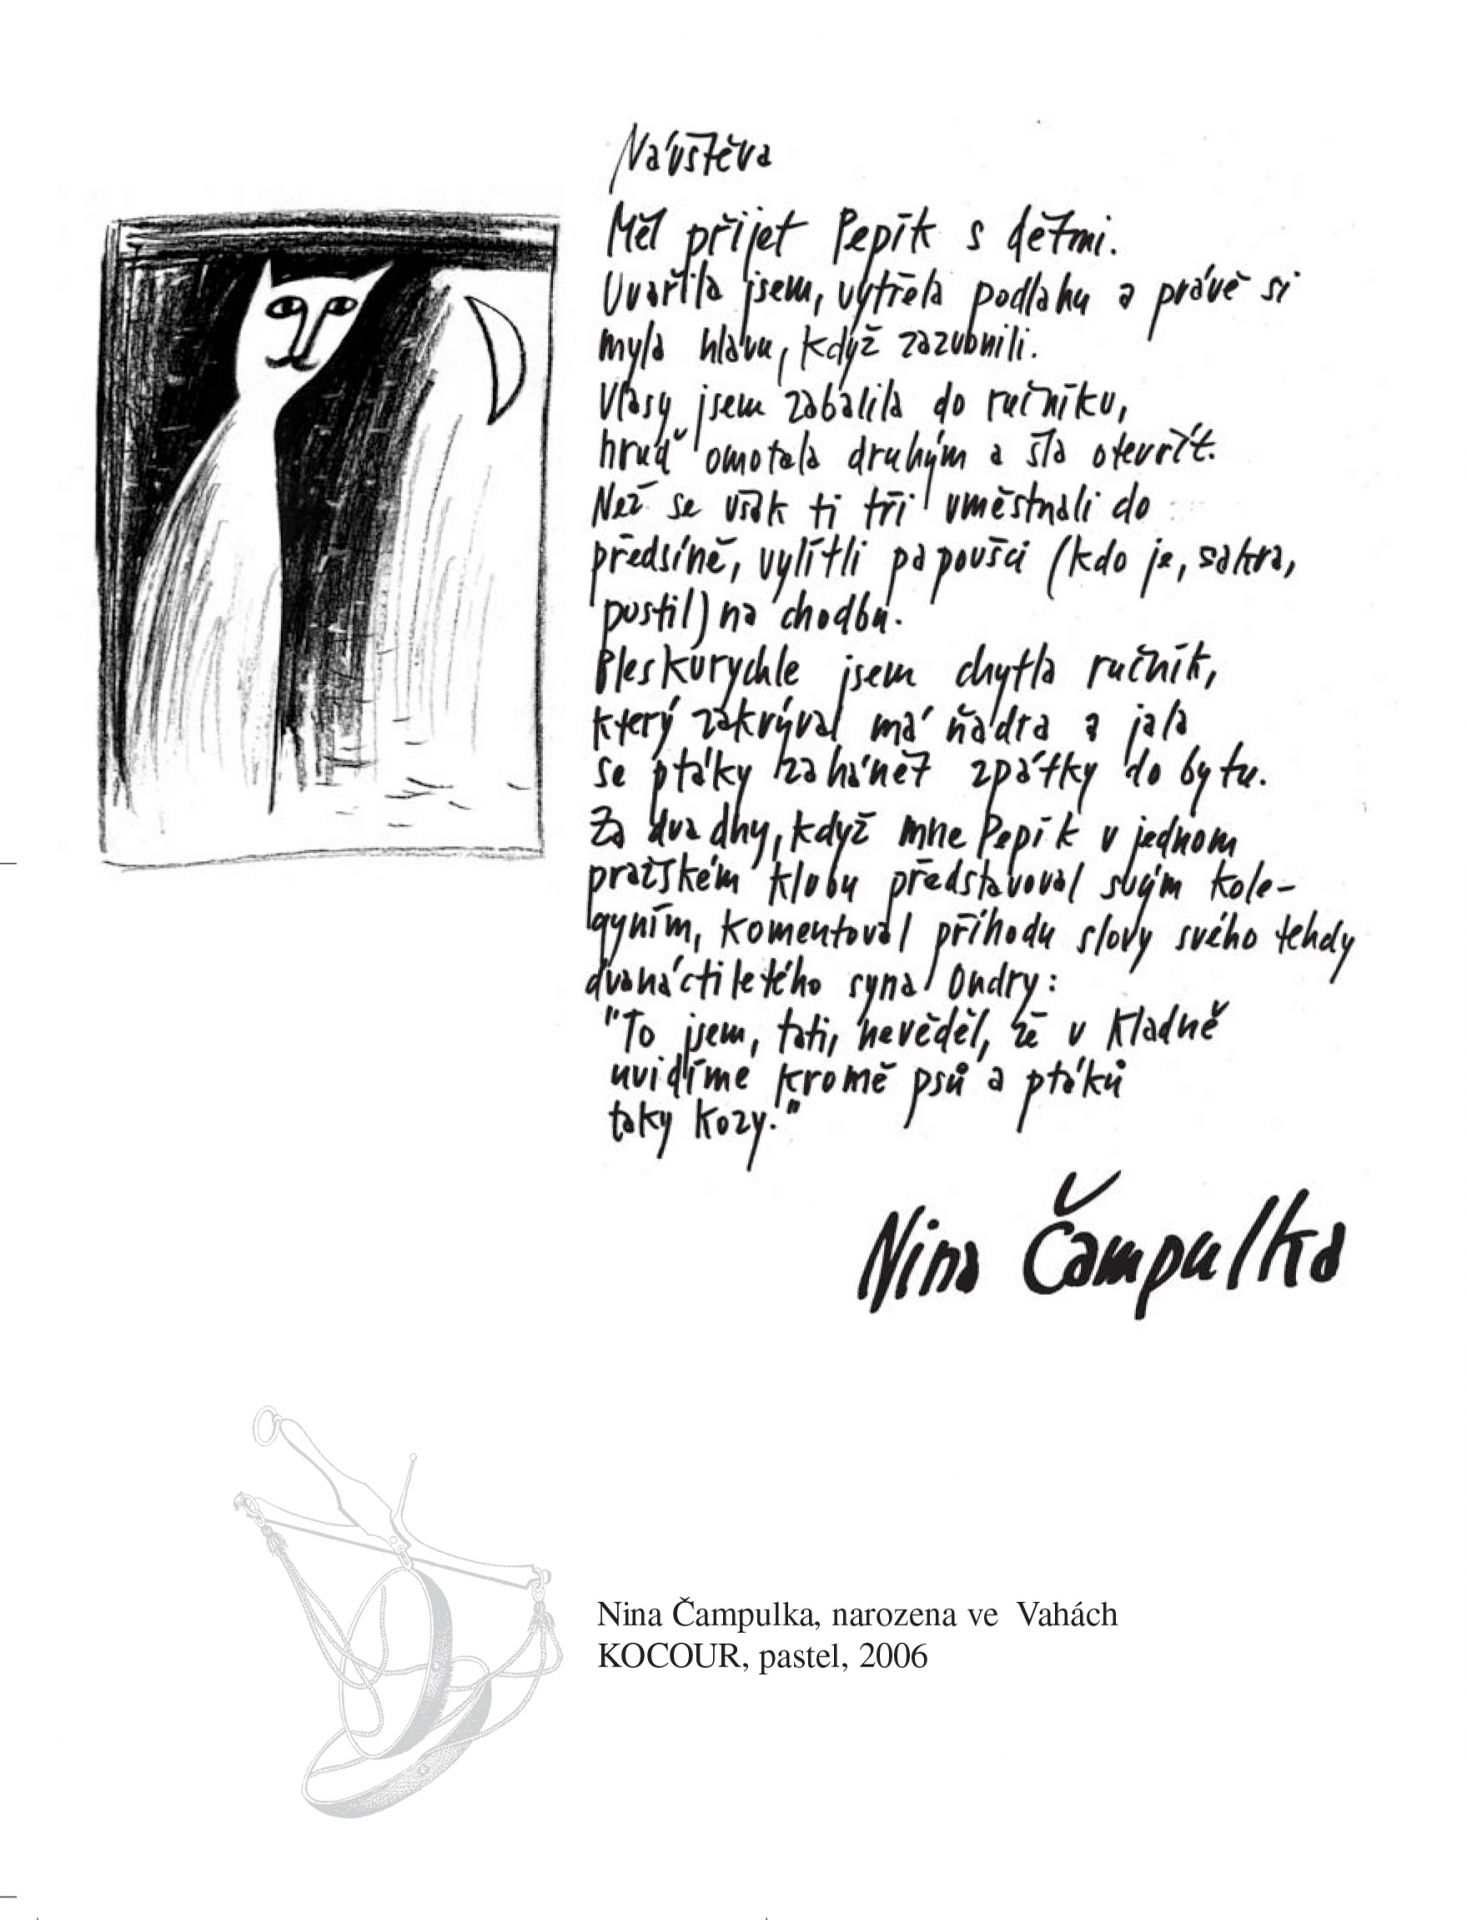 Návštěva
Měl přijet Pepík s dětmi.
Uvařila jsem, vytřela podlahu a právě si
myla hlavu, když zazvonili.
Vlasy jsem zabalila do ručníku,
hruď omotala druhým a šla otevřít.
Než se však ti tři vměstnali do
předsíně, vylítli papoušci (kdo je, sakra,
pustil) na chodbu.
Bleskurychle jsem chytla ručník,
který zakrýval má ňadra a jala
se ptáky zahánět zpátky do bytu.
Za dva dny, když mne Pepík v jednom
pražském klubu představoval svým kole-
gyním, komentoval příhodu slovy svého tehdy
dvanáctiletého syna Ondry:
"To jsem, tati, nevěděl, že v Kladně
uvidíme kromě psů a ptáků
taky kozy."
Nina Čampulka
Nina Čampulka, narozena ve Vahách
KOCOUR, pastel, 2006